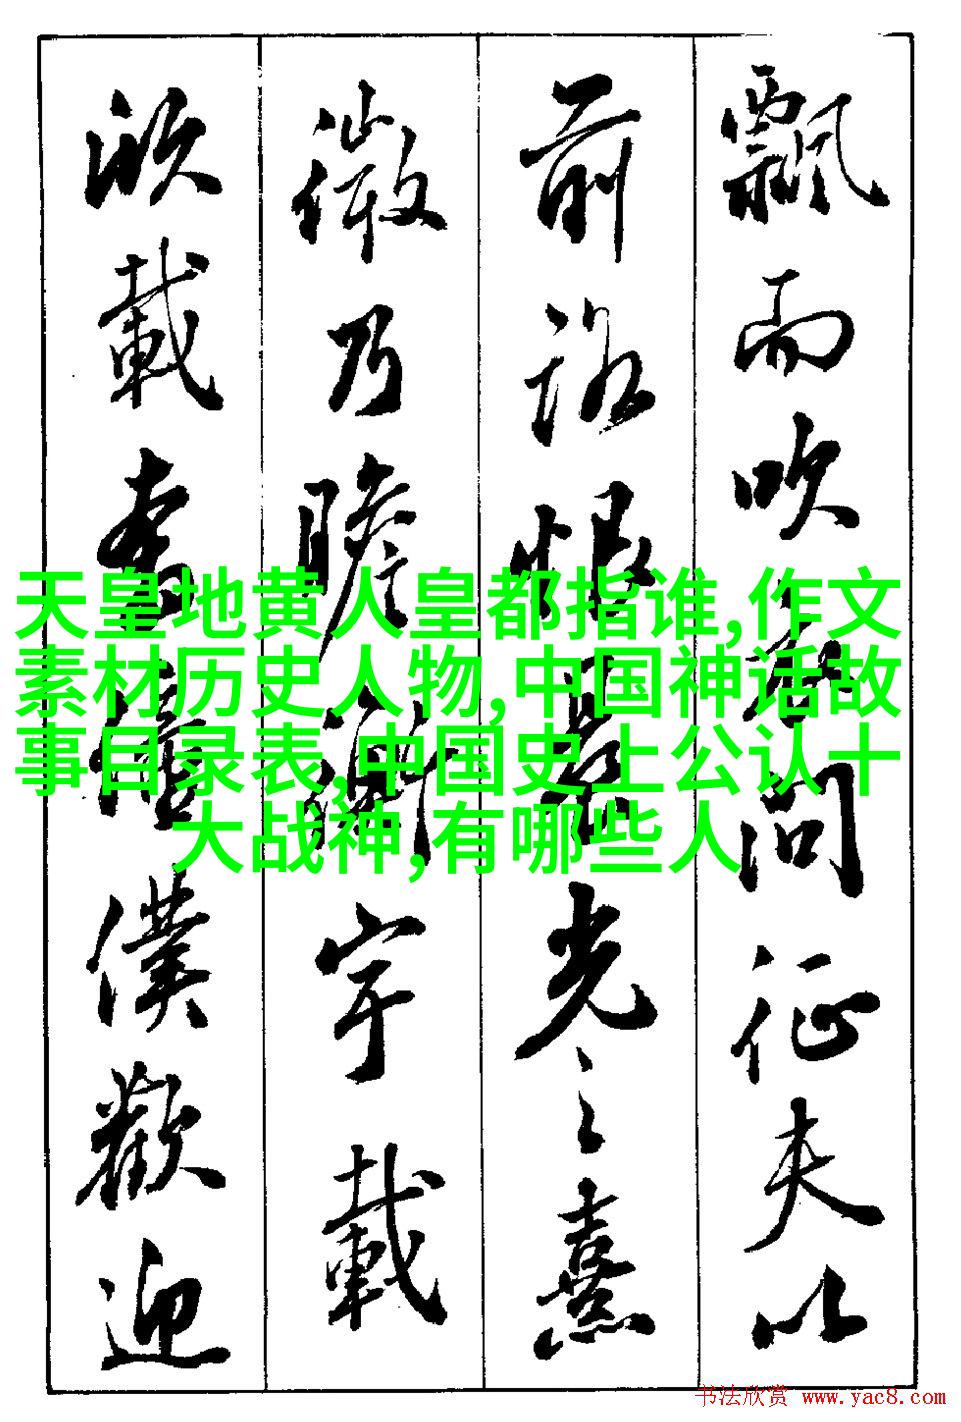 飄而吹衣問征夫以
前路恨晨光之熹
微乃瞻衡宇載
欣載奔僮僕歡迎
天皇地黄人皇都指谁,作文
素材历史人物,中国神话故
事目录表,中国史上公认十
大战神,有哪些人
书法欣赏 www.yac8.com